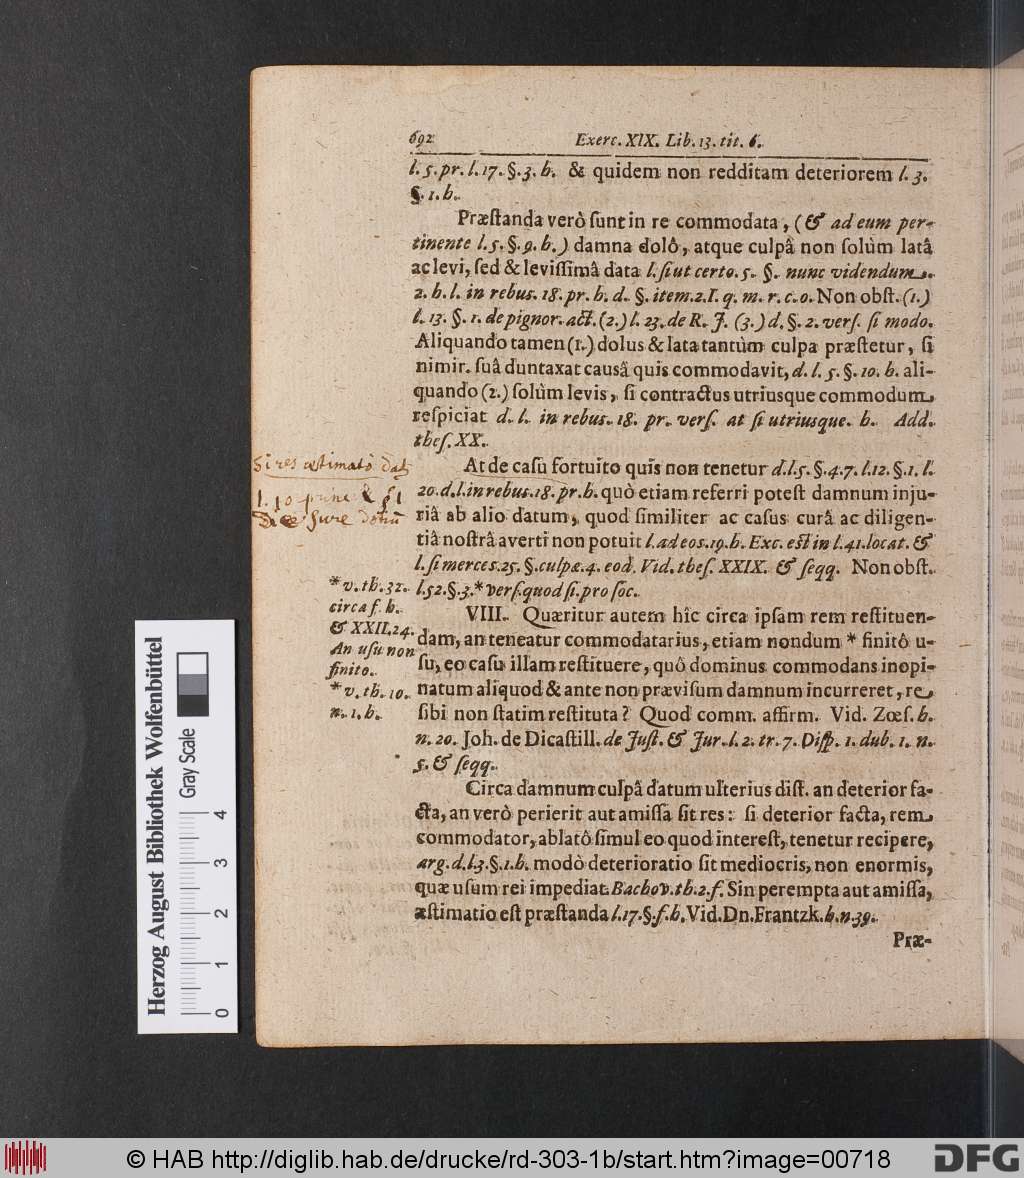 692 Exerc. XIX. Lib. 13. tit. 6.
l. 5. pr. l. 17. §. 3. h. & quidem non redditam deteriorem l. 3.
§. 1. h.
Præſtanda verò ſunt in re commodata, (& ad eum per-
tinente l. 5. §. 9. h.) damna dolô, atque culpâ non ſolùm latâ
ac levi, ſed & leviſſimâ data l. ſi ut certo. 5. §. nunc videndum.
2. h. l. in rebus. 18. pr. h. d. §. item. 2. I. q. m. r. c. o. Non obſt. (1.)
l. 13. §. 1. de pignor. act. (2.) l. 23. de R. J. (3.) d. §. 2. verſ. ſi modo.
Aliquando tamen (1.) dolus & lata tantùm culpa præſtetur, ſi
nimir. ſuâ duntaxat causâ quis commodavit, d. l. 5. §. 10. h. ali-
quando (2.) ſolùm levis, ſi contractus utriusque commodum
reſpiciat d. l. in rebus. 18. pr. verſ. at ſi utriusque. h. Add.
theſ. XX.
At de caſu fortuito quis non tenetur d. l. 5. §. 4. 7. l. 12. §. 1. l.
20. d. l. in rebus. 18. pr. h. quò etiam referri poteſt damnum inju-
riâ ab alio datum, quod ſimiliter ac caſus curâ ac diligen-
tiâ noſtrâ averti non potuit l. ad eos. 19. h. Exc. eſt in l. 41. locat. &
l. ſi merces. 25. §. culpæ. 4. eod. Vid. theſ. XXIX. & ſeqq. Non obſt.
l. 52. §. 3. * verſ. quod ſi. pro ſoc.
VIII. Quæritur autem hîc circa ipſam rem reſtituen-
dam, an teneatur commodatarius, etiam nondum * finitô u-
ſu, eo caſu illam reſtituere, quô dominus commodans inopi-
natum aliquod & ante non præviſum damnum incurreret, re
ſibi non ſtatim reſtituta? Quod comm. affirm. Vid. Zœſ. h.
n. 20. Joh. de Dicaſtill. de Juſt. & Jur. l. 2. tr. 7. Diſp. 1. dub. 1. n.
5. & ſeqq.
Circa damnum culpâ datum ulterius diſt. an deterior fa-
cta, an verò perierit aut amiſſa ſit res: ſi deterior facta, rem
commodator, ablatô ſimul eo quod intereſt, tenetur recipere,
arg. d. l. 3. §. 1. h. modò deterioratio ſit mediocris, non enormis,
quæ uſum rei impediat. Bachov. th. 2. f. Sin perempta aut amiſſa,
æſtimatio eſt præſtanda l. 17. §. f. h. Vid. Dn. Frantzk. h. n. 39.
Præ-
Si res æstimatò
l. 10
Jure
* v. th. 32.
circa f. h.
& XXII. 24.
An uſu non
finito.
* v. th. 10.
n. 1. h.
Herzog August Bibliothek Wolfenbüttel
Gray Scale
0 1 2 3 4
© HAB http://diglib.hab.de/drucke/rd-303-1b/start.htm?image=00718
DFG